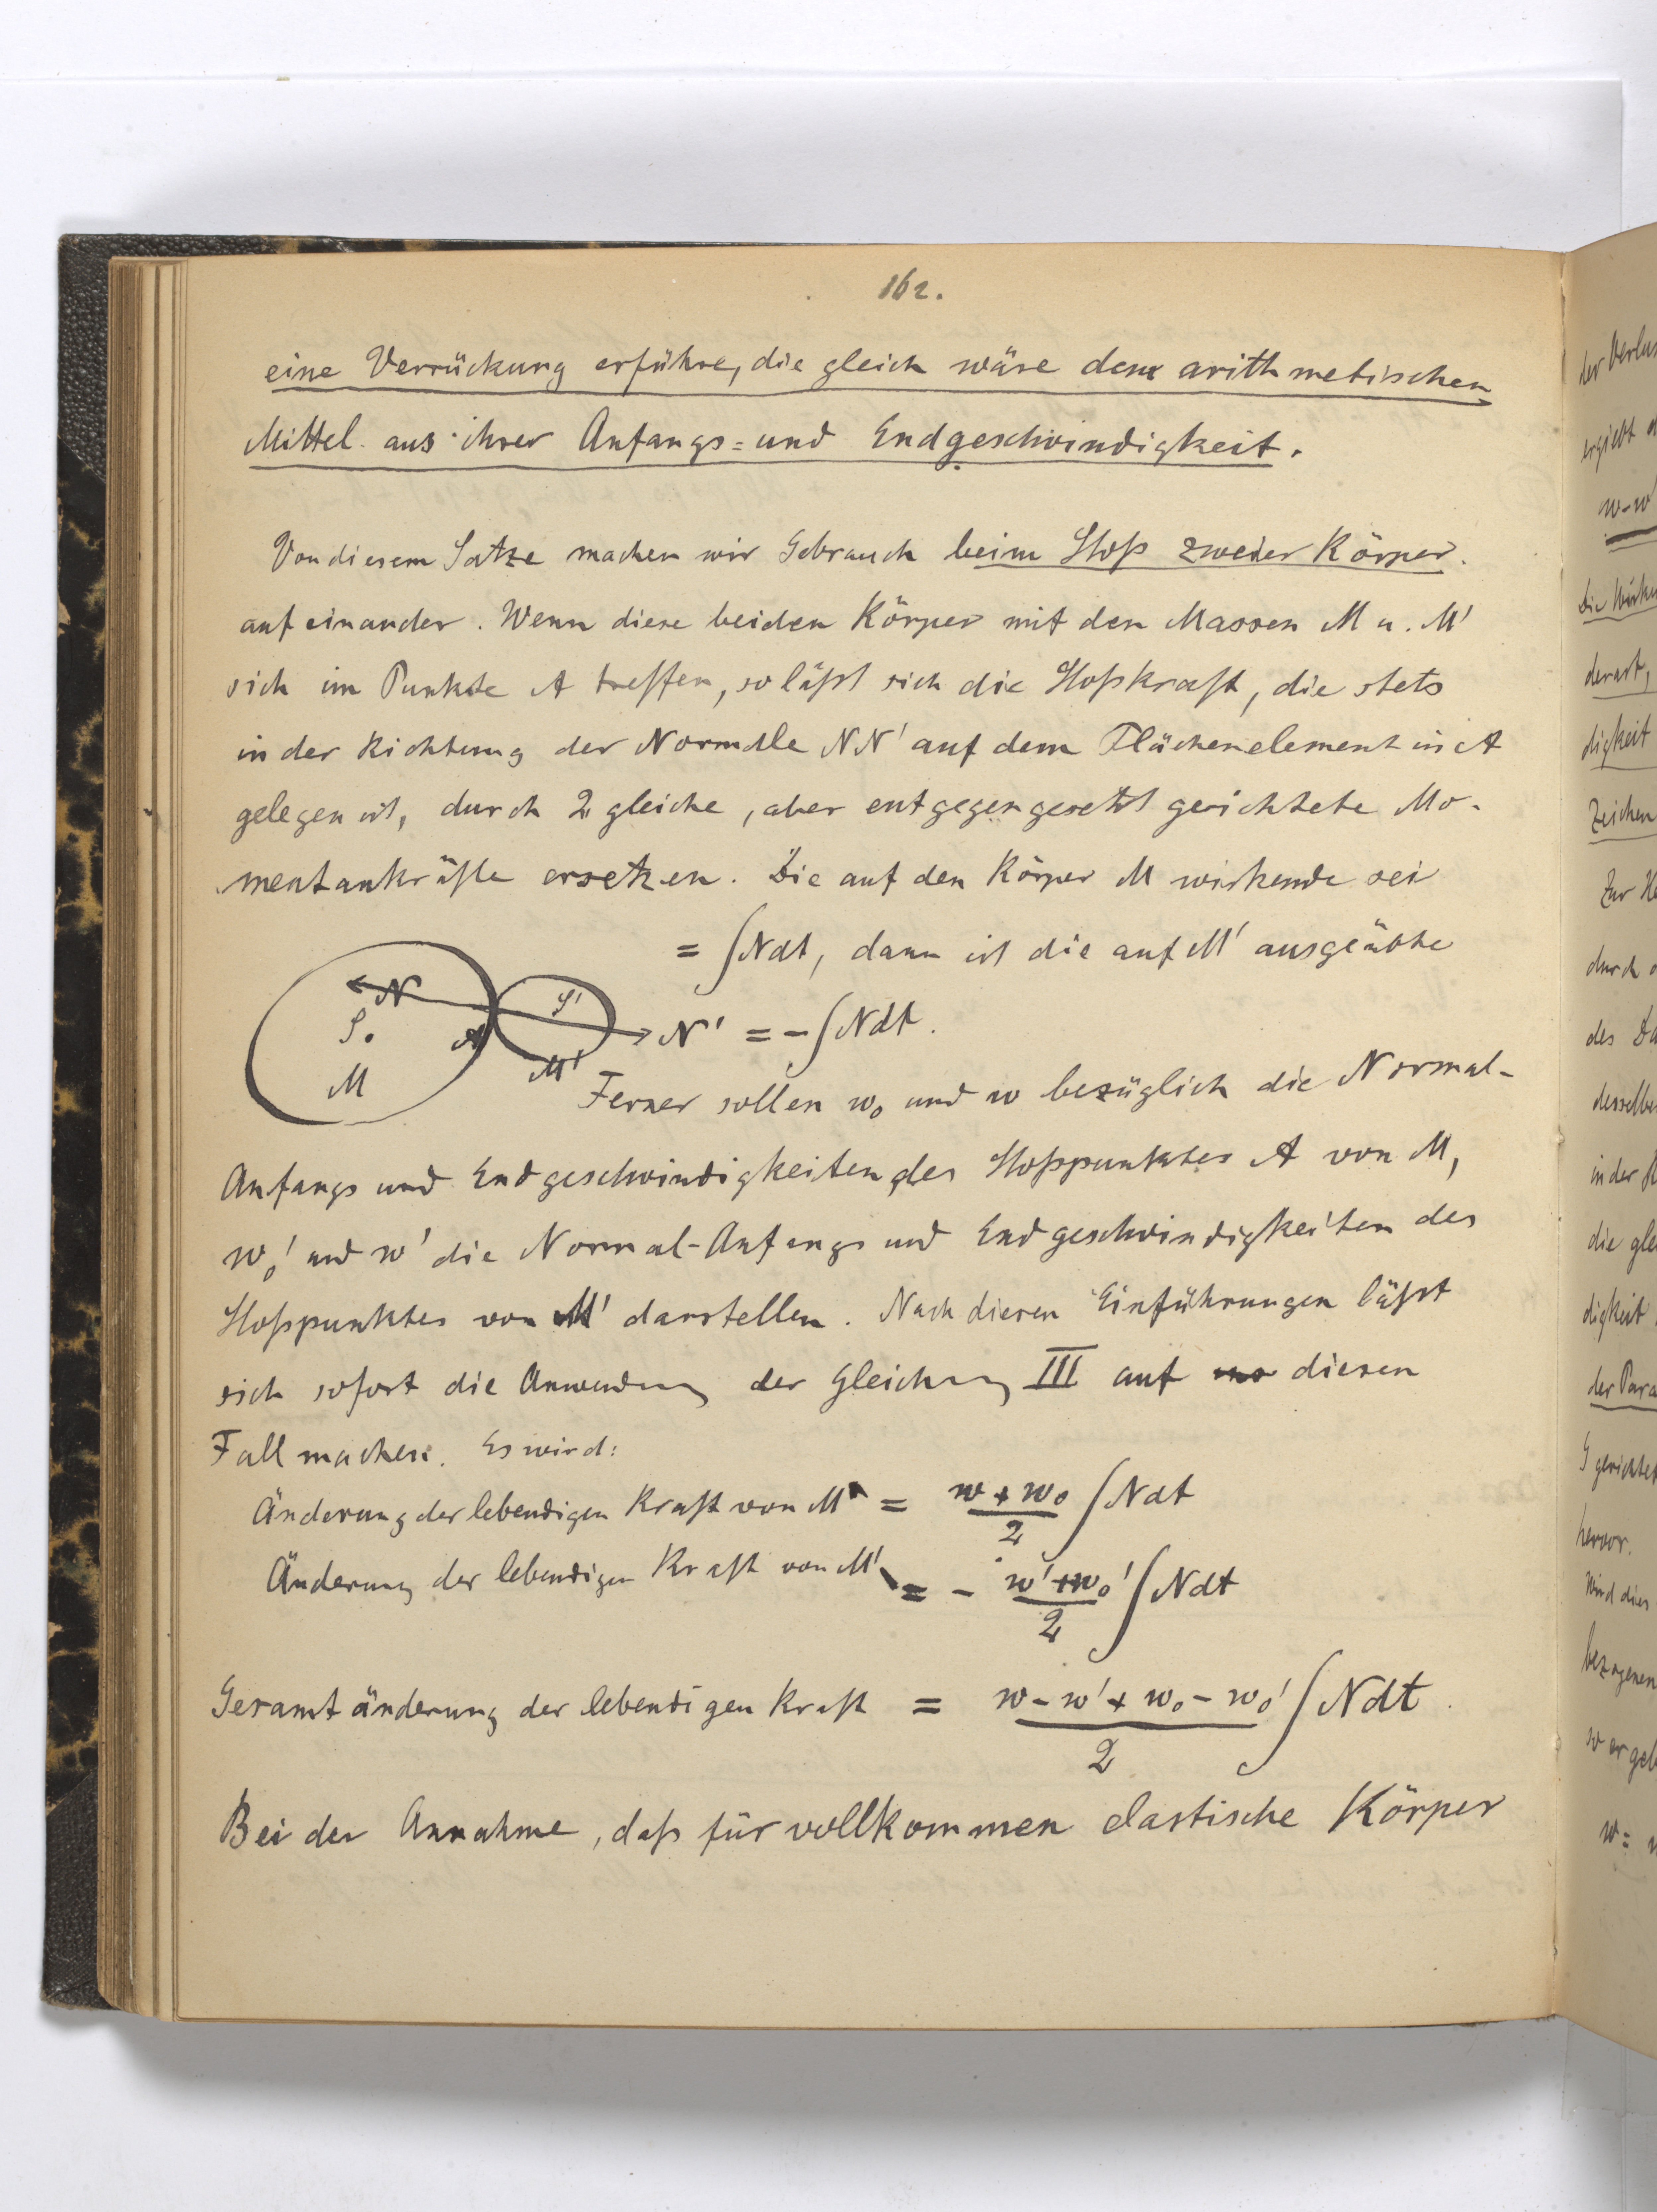 162.
eine Verrückung erführe, die gleich wäre dem arithmetischen
Mittel aus ihrer Anfangs= und Endgeschwindigkeit.
Von diesem Satze machen wir Gebrauch beim Stoß zweier Körper
auf einander. Wenn diese beiden Körper mit den Massen M u. M'
sich im Punkte A treffen, so läßt sich die Stoßkraft, die stets
in der Richtung der Normale NN' auf dem Flächenelement in A
gelegen ist, durch 2 gleiche, aber entgegengesetzt gerichtete Mo-
mentankräfte ersetzen. Die auf den Körper M wirkende sei
= ∫Ndt, dann ist die auf M' ausgeübte
N S' S. A N' = -∫Ndt.
M M'
Ferner sollen w₀ und w bezüglich die Normal-
Anfangs und Endgeschwindigkeiten des Stoßpunktes A von M,
w₀' und w' die Normal-Anfangs und Endgeschwindigkeiten des
Stoßpunktes von M' darstellen. Nach diesen Einführungen läßt
sich sofort die Anwendung der Gleichung III auf diesen
Fall machen. Es wird:
Änderung der lebendigen Kraft von M = (w + w₀)/2 ∫Ndt
Änderung der lebendigen Kraft von M' = - (w' + w₀')/2 ∫Ndt
Gesamtänderung der lebendigen Kraft = (w - w' + w₀ - w₀')/2 ∫Ndt
Bei der Annahme, daß für vollkommen elastische Körper
ergiebt
w-w'
derart,
digkeit
Zeichen
durch
des
desselben
in der
die
digkeit
der Para
hervor.
Wird dies
bezogenen
w =